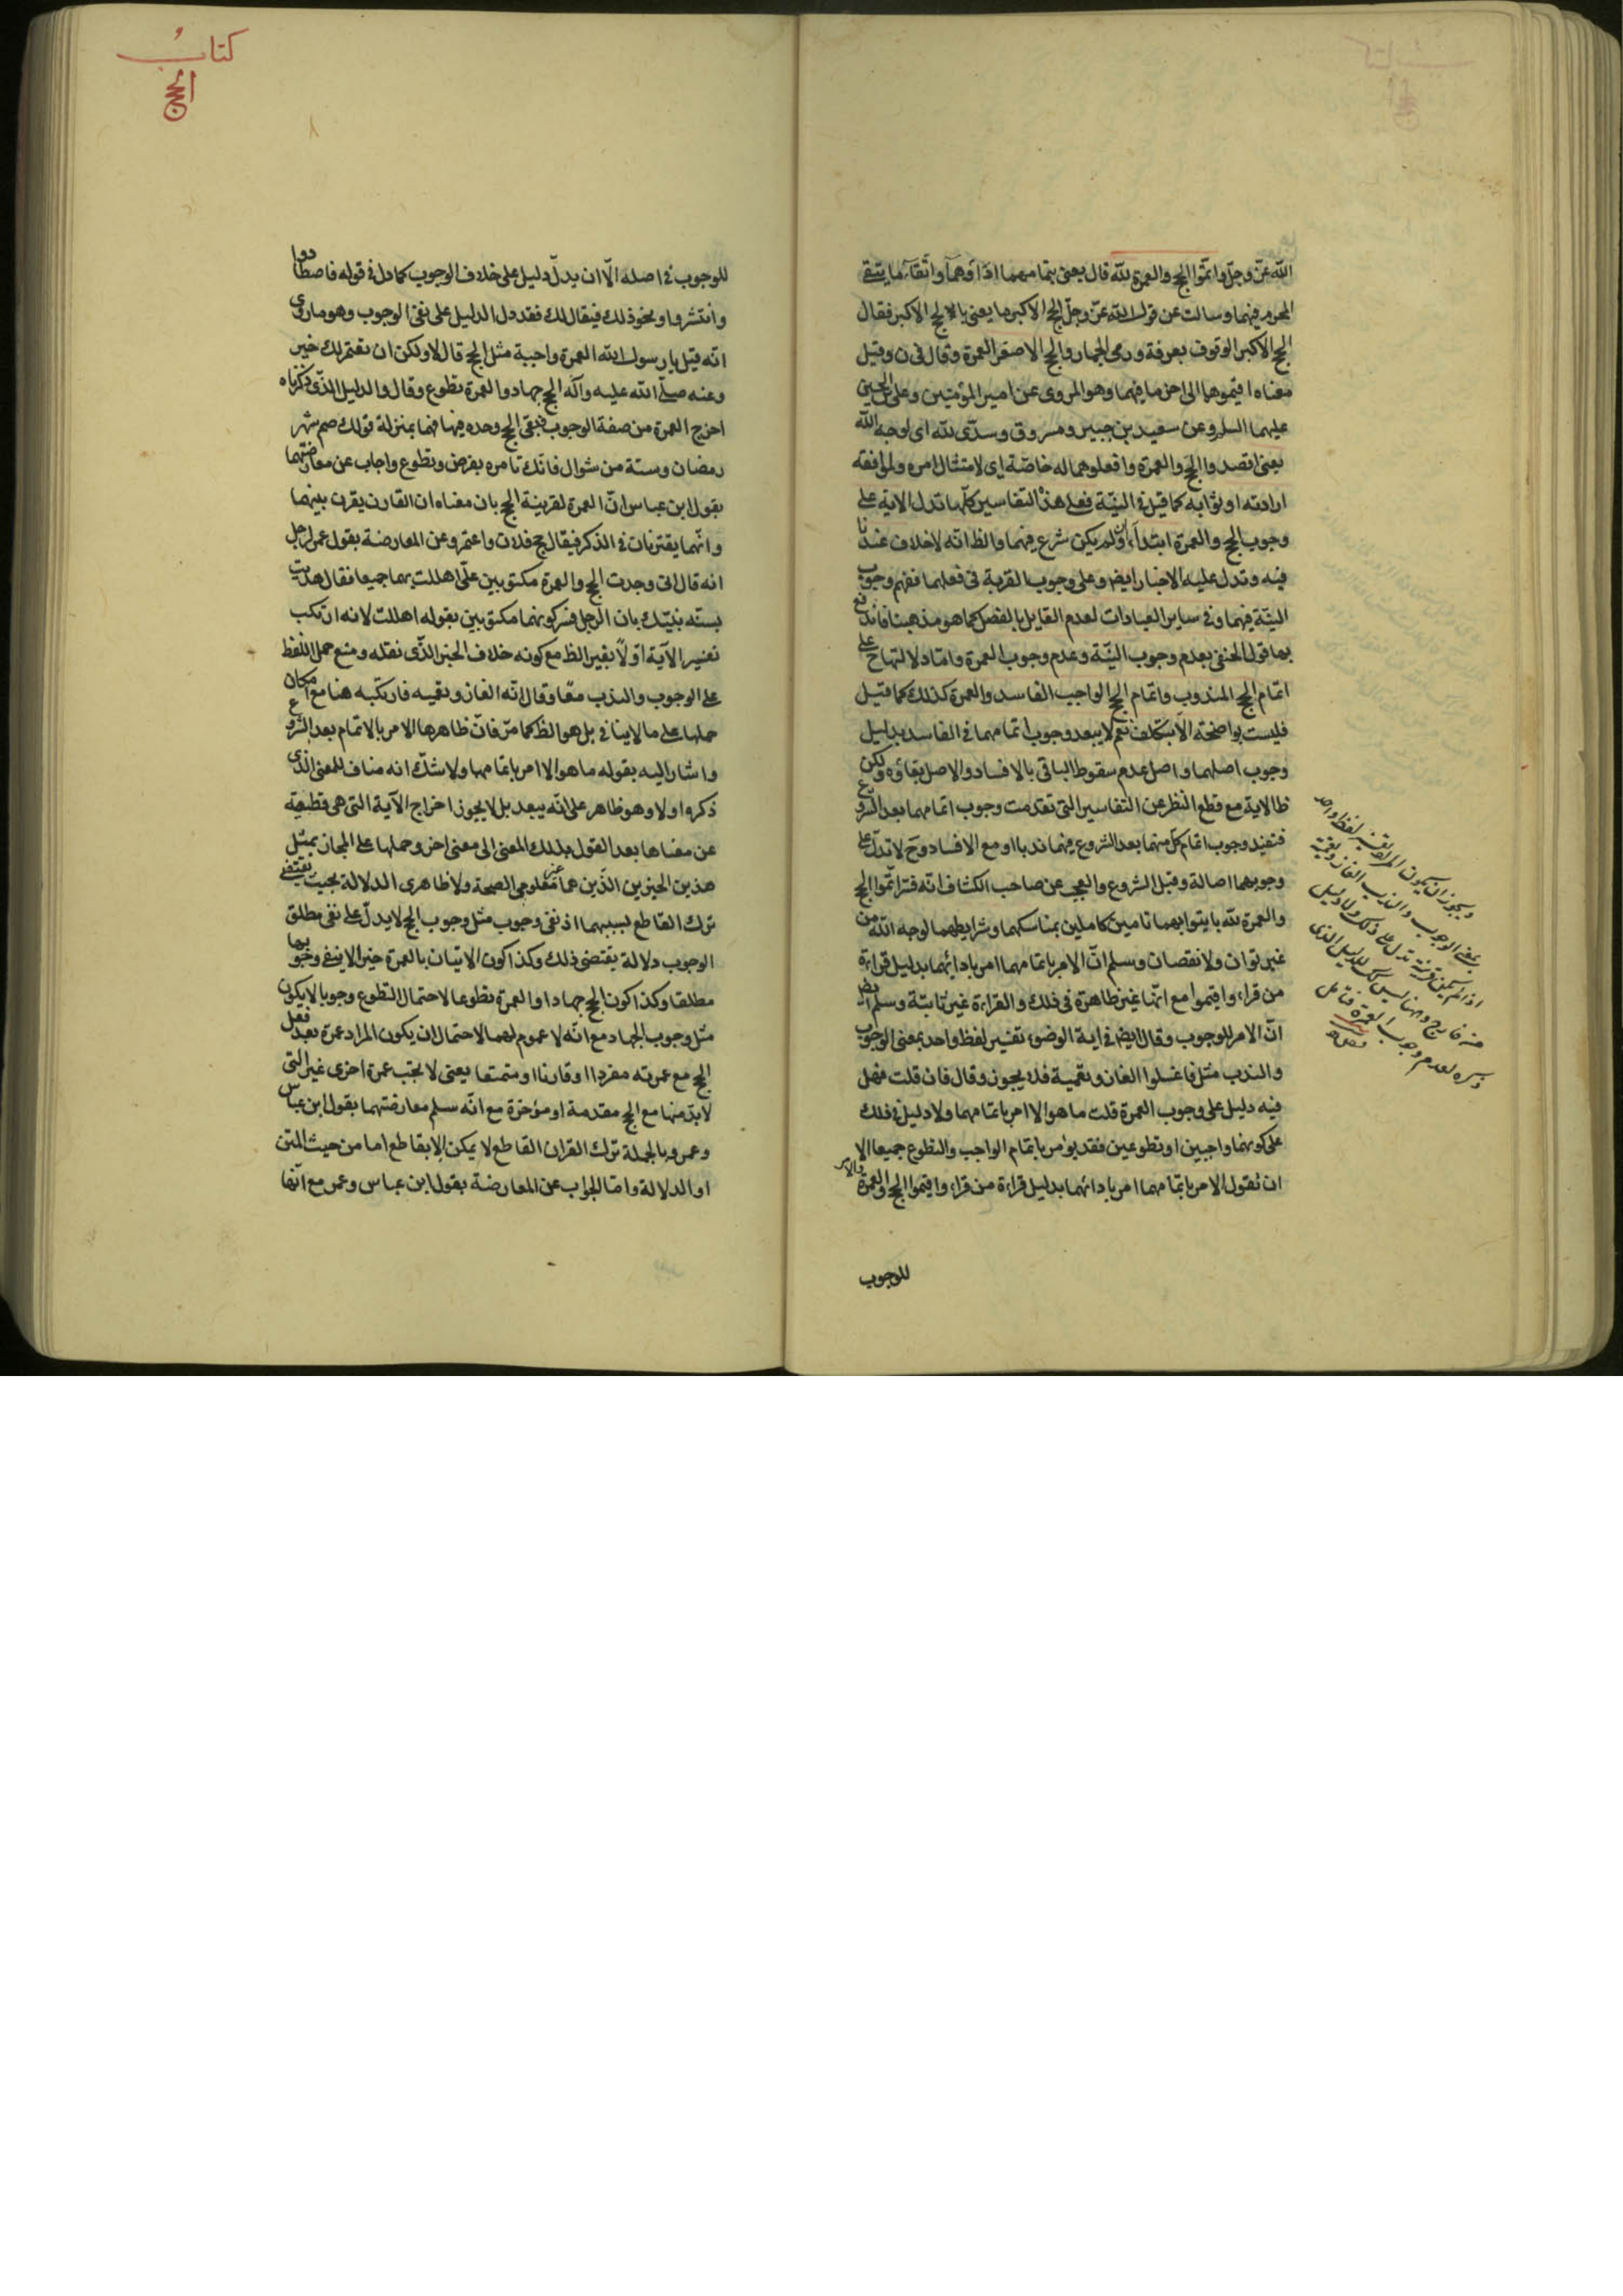 الله عزّ وجلّ واتمّوا الحج والعمرة لله قال يعنى بتمامهما اداؤهما واتقاء ما يتقى
المحرم فيهما وسالت عن قول الله عزّ وجلّ الحج الاكبر ما يعنى بالحج الاكبر فقال
الحج الاكبر الوقوف بعرفة ورمى الجمار والحج الاصغر العمرة وقال فى ن وقيل
معناه اقيموهما الى اخر ما فيهما وهو المروى عن امير المؤمنين وعلى بن الحسين
عليهما السلم وعن سعيد بن جبير ومسروق وسدّى لله اى لوجه الله
يعنى اقصدوا الحج والعمرة وافعلوهما له خاصّة اى لامتثال امره ولموافقة
ارادته او ثوابه كما قيل فى النيّة فعلى هذه التفاسير كلّها تدل الاية على
وجوب الحج والعمرة ابتداء وان لم يكن شرع فيهما والظ انّه لاخلاف عندنا
فيه وتدل عليه الاخبار ايض وعلى وجوب القربة فى فعلهما ففهم وجوب
النيّة فيهما وفى ساير العبادات لعدم القايل بالفصل كما هو مذهبنا فاندفع
بها قول الحنفى بعدم وجوب النيّة وعدم وجوب العمرة وامّا دلالتها ح على
اتمام الحج المندوب واتمام الحج الواجب الفاسد والعمرة كذلك كما قيل
فليست بواضحة الّا بتكلف نعم لايبعد وجوب اتمامهما فى الفاسد بدليل
وجوب اصلهما واصل عدم سقوط الباقى بالافساد والاصل بقاؤه ولكن
ظ الاية مع قطع النظر عن التفاسير التى تقدمت وجوب اتمامهما بعد الشروع
فتفيد وجوب اتمام كلّ منهما بعد الشروع فيهما ندبا او مع الافساد وح لا تدلّ على
وجوبهما اصالة وقبل الشروع والعجب عن صاحب الكشاف انّه فسّر اتمّوا الحج
والعمرة لله بايتوا بهما تامين كاملين بمناسكهما وشرايطهما لوجه الله من
غير توان ولا نقصان وسلم انّ الامر باتمامهما امر بادائهما بدليل قراءة
من قراء واقيموا مع انّها غير ظاهرة فى ذلك والقراءة غير ثابتة وسلم ايض
انّ الامر للوجوب وقال ايض فى اية الوضوء تفسير لفظ واحد بمعنى الوجوب
والندب مثل فاغسلوا الغاز وتعمية فلا يجوز وقال فان قلت فهل
فيه دليل على وجوب العمرة قلت ما هو الا امر باتمامهما ولا دليل فى ذلك
على كونهما واجبين او تطوعين فقد يؤمر باتمام الواجب والتطوع جميعا الا
ان نقول الامر باتمامهما امر بادائهما بدليل قراءة من قراء واقيموا الحج والعمرة والامر
للوجوب
ويجوز ان يكون المراد تفسير لفظ واحد
بمعنى الوجوب والندب الغاز وتعمية
اذا لم يكن قرينة تدل على ذلك ولا دليل
من خارج وههنا ليس كك للدليل الذى
ذكره لعدم وجوب العمرة فتامل
كتاب
الحج
للوجوب فى اصله الّا ان يدلّ دليل على خلاف الوجوب كما دل فى قوله فاصطادوا
وانتشروا ونحو ذلك فيقال لك فقد دل الدليل على نفى الوجوب وهو ما روى
انّه قيل يا رسول الله العمرة واجبة مثل الحج قال لا ولكن ان تعتمر لك خير
وعنه صلّى الله عليه وآله الحج جهاد والعمرة تطوع وقال والدليل الذّى ذكرناه
اخرج العمرة من صفة الوجوب فبقى الحج وحده فيها فهما بمنزلة قولك صم شهر
رمضان وستة من شوال فانّك تامره بفرض وتطوع واجاب عن معارضتهما
بقول ابن عباس انّ العمرة لقرينة الحج بان معناه ان القارن يقرن بينهما
وانّهما يقترنان فى الذكر فيقال حج فلان واعتمر وعن المعارضة بقول عمر لرجل
انه قال انى وجدت الحج والعمرة مكتوبين علىّ اهللت بهما جميعا فقال هديت
لسنة نبيّك بان الرجل فسر كونهما مكتوبين بقوله اهللت لانه ارتكب
تفسير الآية اوّلاً بغير الظ مع كونه خلاف الخبر الذّى نقله ومنع حمل اللفظ
على الوجوب والندب معا وقال انّه الغاز وتعمية فارتكبه هنا مع امكان
حملها على ما لاينافى بل هو الظ كما مرّ فانّ ظاهرها الامر بالاتمام بعد الشروع
واشار اليه بقوله ما هو الا امر باتمامهما ولا شكّ انه مناف للمعنى الذى
ذكره اولا وهو ظاهر على انّه يبعد بل لايجوز اخراج الآية التى هى قطعية
عن معناها بعد القول بذلك المعنى الى معنى اخر وحملها على المجاز بمثل
هذين الخبرين الذّين هما غير معلومى الصحة ولا ظاهرى الدلالة بحيث يقتضى
ترك القاطع لسببهما اذ نفى وجوب مثل وجوب الحج لايدلّ على نفى مطلق
الوجوب دلالة يقتضى ذلك وكذا كون الاتيان بالعمرة خير الاينفى وجوبها
مطلقا وكذا كون الحج جهادا والعمرة تطوعا لاحتمال التطوع وجوبا لايكون
مثل وجوب الجهاد مع انّه لا عموم لهما لاحتمال ان يكون المراد عمرة بعد فعل
الحج مع عمرته مفردا او قارنا او متمتعا يعنى لا تجب عمرة اخرى غير التى
لابدّ منها مع الحج مقدمة او مؤخرة مع انّه سلم معارضتهما بقول ابن عباس
وعمر وبالجملة ترك القران القاطع لا يمكن الا بقاطع اما من حيث المتن
او الدلالة وامّا الجواب عن المعارضة بقول ابن عباس وعمر مع انّها